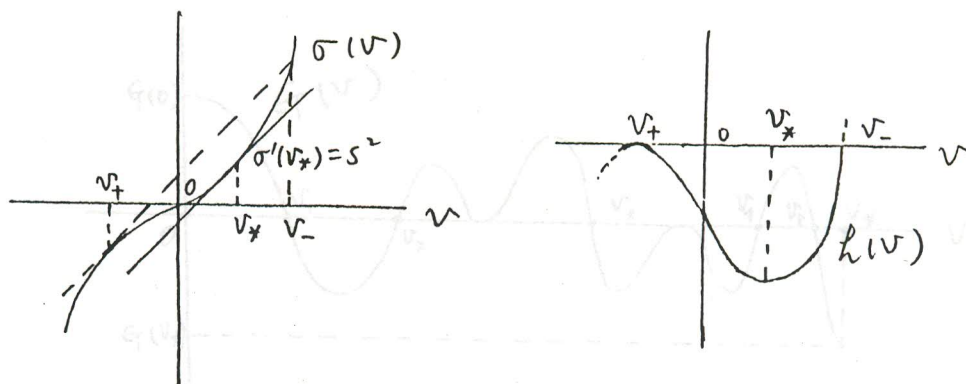 σ(v)
σ'(v*) = s²
v₊
0
v* v₋
v
v₊ 0 v* v₋
v
h(v)